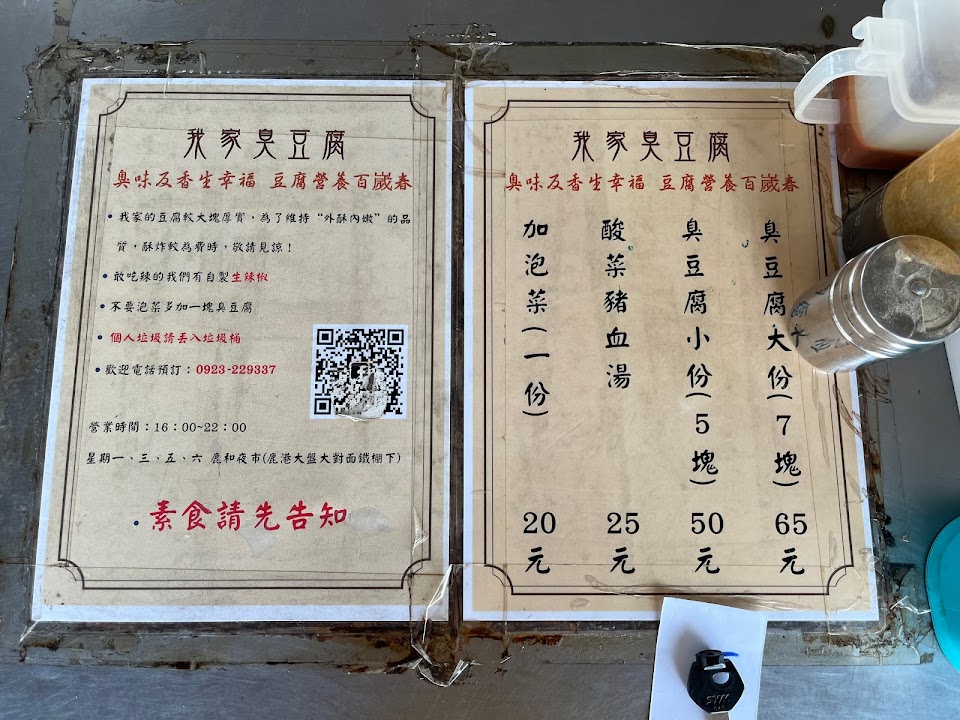 我家臭豆腐
臭味及香生幸福 豆腐營養百嵗春
•我家的豆腐較大塊厚實，為了維持“外酥內嫩”的品
質，酥炸較為費時，敬請見諒！
•敢吃辣的我們有自製生辣椒
•不要泡菜多加一塊臭豆腐
•個人垃圾請丟入垃圾桶
•歡迎電話預訂：0923-229337
營業時間：16：00~22：00
星期一、三、五、六 鹿和夜市(鹿港大盤大對面鐵棚下)
•素食請先告知
我家臭豆腐
臭味及香生幸福 豆腐營養百嵗春
臭豆腐大份(7塊) 65元
臭豆腐小份(5塊) 50元
酸菜豬血湯 25元
加泡菜(一份) 20元